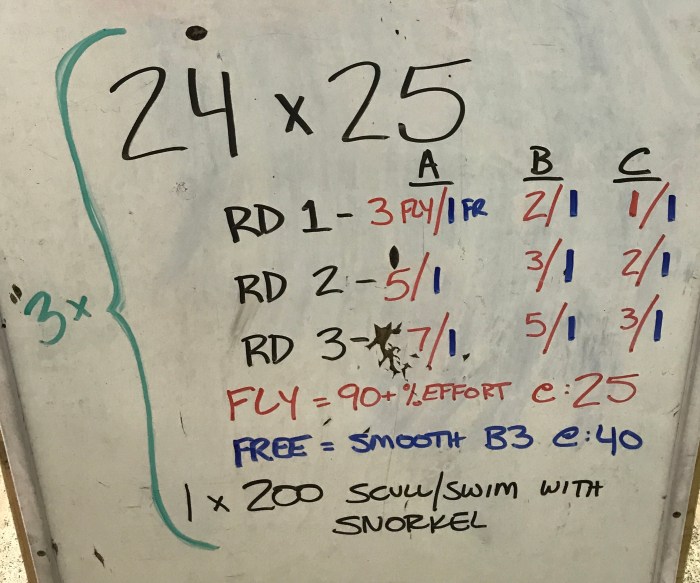 24 x 25
A B C
RD 1- 3 FLY/1 FR 2/1 1/1
RD 2-5/1 3/1 2/1
RD 3- 7/1 5/1 3/1
3x
FLY = 90+% EFFORT @ :25
FREE = SMOOTH B3 @ :40
1 x 200 SCULL/SWIM WITH
SNORKEL